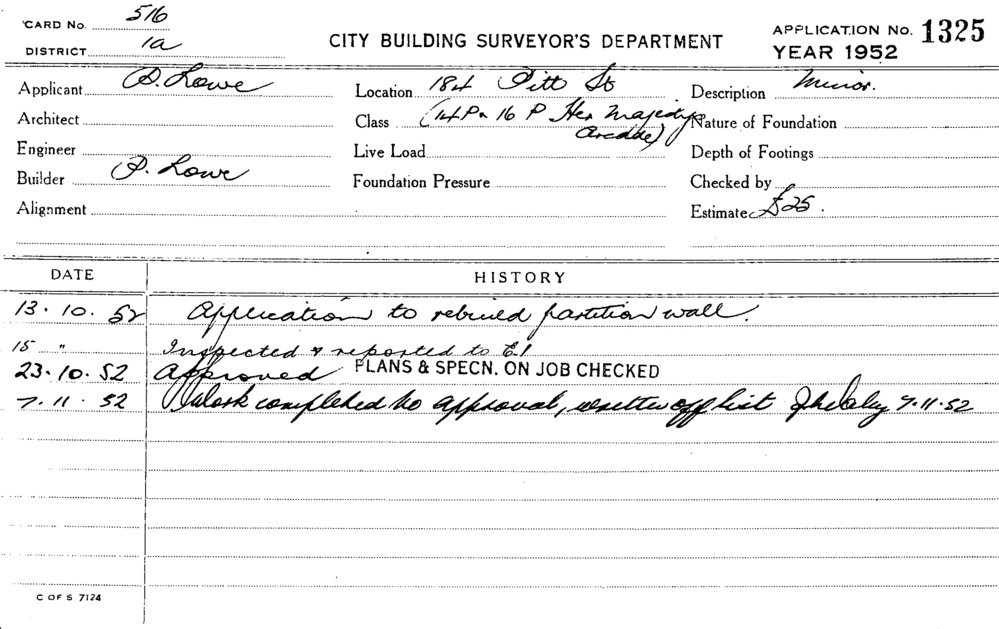 CARD No. 516
DISTRICT 1a
CITY BUILDING SURVEYOR'S DEPARTMENT
APPLICATION No. 1325
YEAR 1952
Applicant P. Lowe
Location 184 Pitt St
Description Minor.
Architect
Class (14P & 16 P Her Majestys
Arcade)
Nature of Foundation
Engineer
Live Load
Depth of Footings
Builder P. Lowe
Foundation Pressure
Checked by
Alignment
Estimate £25.
DATE HISTORY
13.10.52 Application to rebuild partition wall.
15 " Inspected & reported to E.I
23.10.52 Approved PLANS & SPECN. ON JOB CHECKED
7.11.52 Work completed to approval, written off list 7.11.52
C OF S 7124